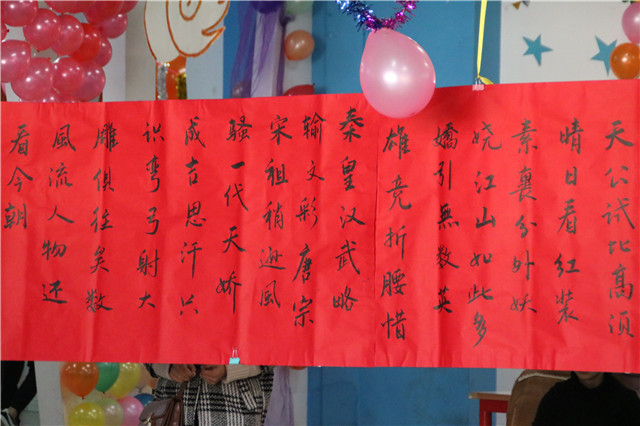 天公试比高须
晴日看红装
素裹分外妖
娆江山如此多
嬌引無数英
雄竞折腰惜
秦皇汉武略
输文彩唐宗
宋祖稍逊風
骚一代天娇
成吉思汗只
识弯弓射大
雕俱往矣数
風流人物还
看今朝